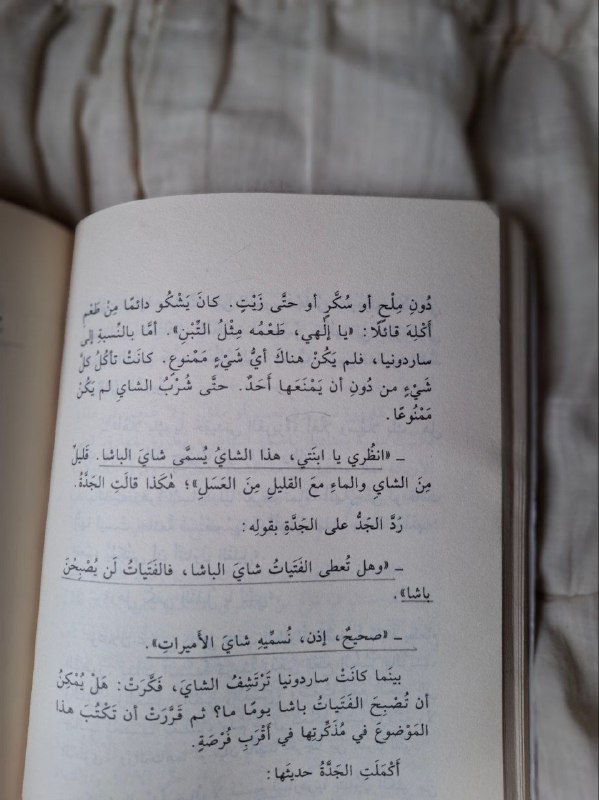 دُونِ مِلْحٍ أو سُكَّرٍ أو حتَّى زَيْتٍ. كانَ يَشْكُو دائمًا مِنْ طَعْمِ
أَكْلِهَ قائلًا: «يا إلٰهي، طَعْمُه مِثْلُ التِّبْنِ». أمَّا بالنِّسبةِ إلى
ساردونيا، فلم يَكُنْ هناكَ أيُّ شَيْءٍ مَمْنوعٍ. كانَتْ تأكُلُ كلَّ
شَيْءٍ من دُونِ أن يَمْنَعَها أَحَدٌ. حتَّى شُرْبُ الشايِ لم يَكُنْ
مَمْنُوعًا.
ـ «انظُري يا ابنَتي، هذا الشايُ يُسمَّى شايَ الباشا. قَليلٌ
مِنَ الشايِ والماءِ معَ القليلِ مِنَ العَسَلِ»؛ هٰكَذا قالَتِ الجَدَّةُ.
رُدَّ الجَدُّ على الجَدَّةِ بقولِه:
ـ «وهل تُعطى الفَتَياتُ شايَ الباشا، فالفَتَياتُ لَن يُصْبِحْنَ
باشا».
ـ «صحيحٌ، إذن، نُسمِّيهِ شايَ الأَميراتِ».
بينَما كانَتْ ساردونيا تَرْتَشِفُ الشايَ، فَكَّرَتْ: هَلْ يُمْكِنُ
أن تُصْبِحَ الفَتَياتُ باشا يومًا ما؟ ثم قَرَّرَتْ أن تَكْتُبَ هذا
المَوْضوعَ في مُذَكِّرتِها في أَقْرَبِ فُرْصَةٍ.
أَكْمَلَتِ الجَدَّةُ حديثَها: